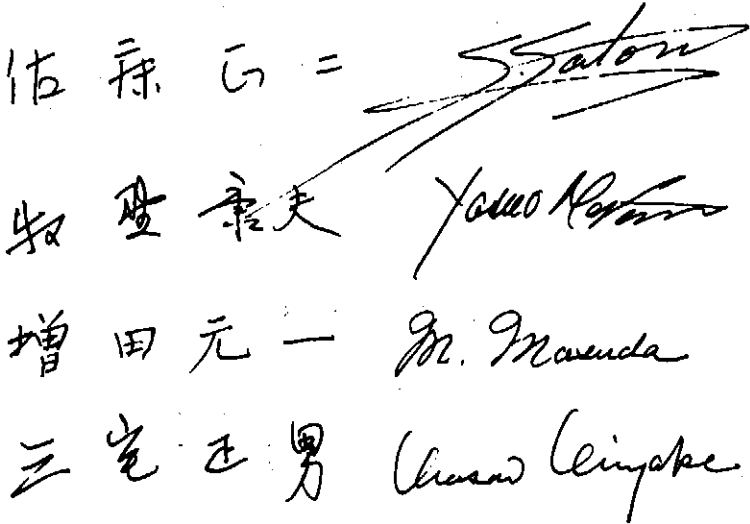 佐藤正二 S. Satou
牧野康夫 Yasuo
増田元一 M. Masuda
三宅正男 Masao Miyake